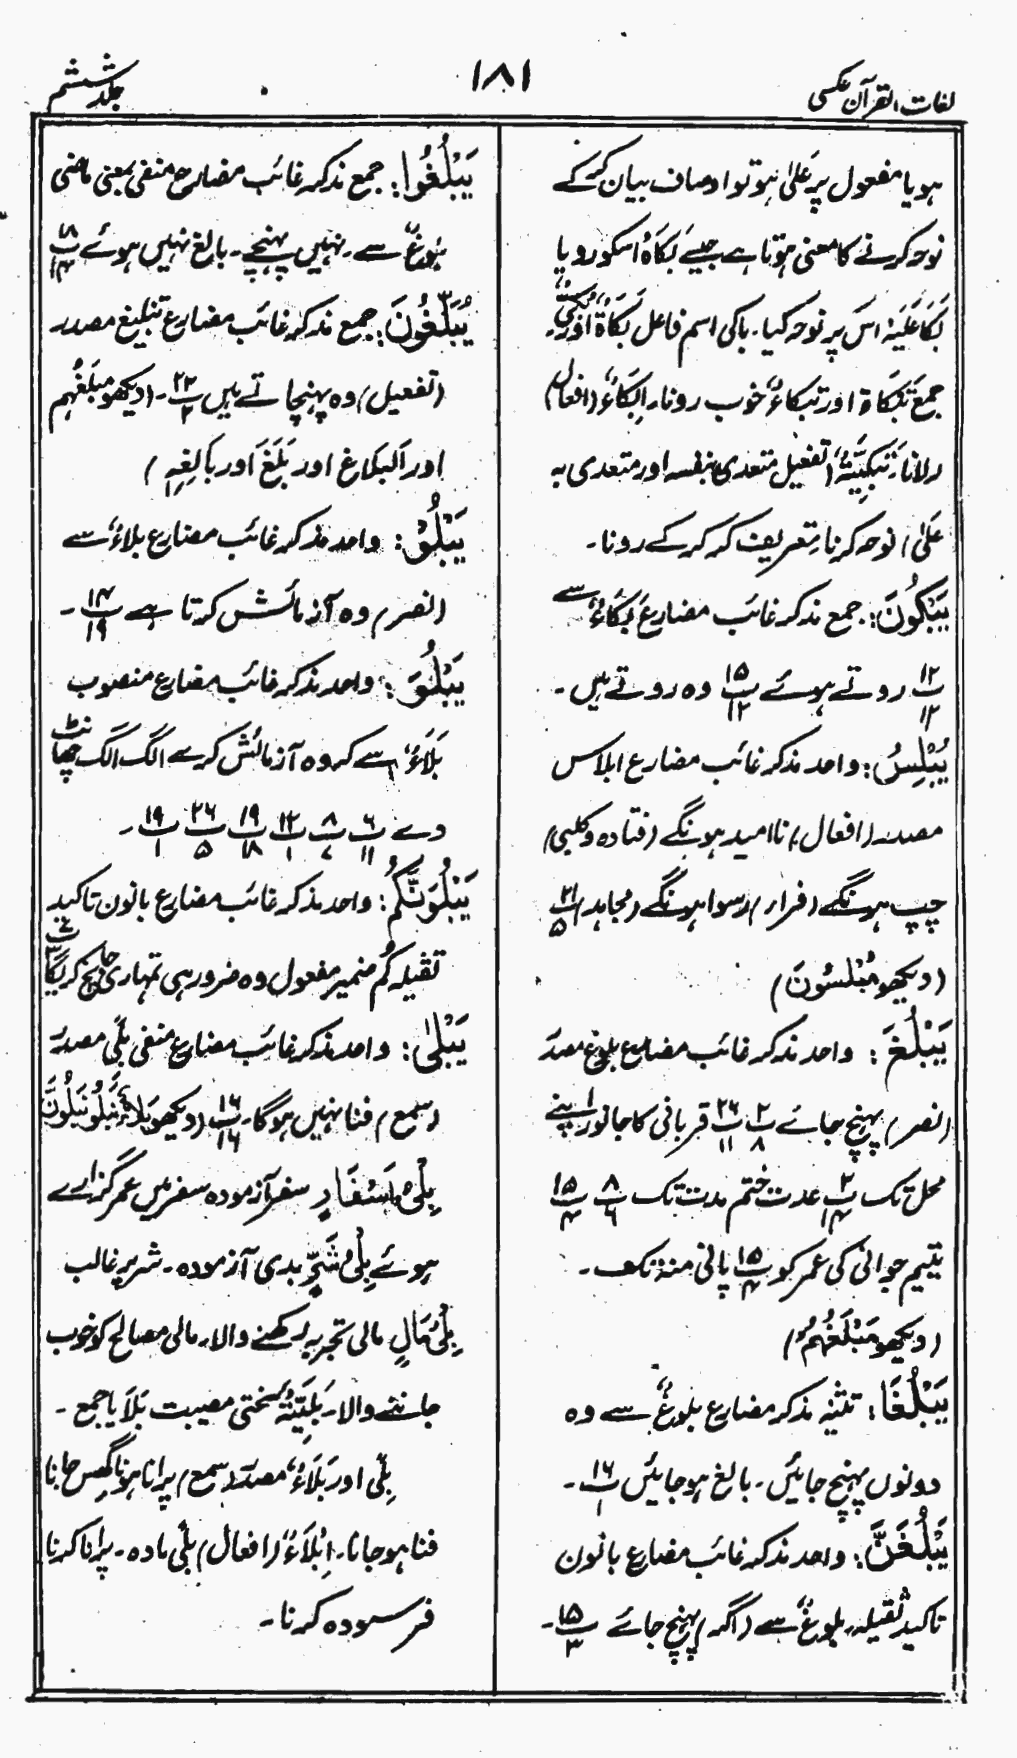 لغات القرآن عکسی
۱۸۱
جلد ششم
ہو یا مفعول پر عَلیٰ ہو تو اوصاف بیان کر کے
نوحہ کرنے کا معنی ہوتا ہے جیسے بَکَاہُ اسکو رویا
بَکَا عَلَیْہِ اس پر نوحہ کیا۔ باکی اسم فاعل بُکَاۃٌ اور بُکِیٌّ
جمع تَبْکَاۃ اور تبکاءٌ خوب رونا۔ اِبْکَاءٌ (افعال)
رلانا۔ تَبْکِیَۃٌ (تفعیل متعدی بنفسہ اور متعدی بہ
عَلیٰ) نوحہ کرنا۔ تعریف کر کر کے رونا۔
یَبْکُونَ: جمع مذکر غائب مضارع بُکَاءٌ سے
۱۲/۱۲ روتے ہوئے ۱۵/۱۲ وہ روتے ہیں۔
یُبْلِسُ: واحد مذکر غائب مضارع ابلاس
مصدر (افعال) ناامید ہونگے (قتادہ و کلبی)
چپ ہونگے (فرار) رسوا ہونگے (مجاہد) ۲۱/۵
(دیکھو مُبْلِسُونَ)
یَبْلُغَ: واحد مذکر غائب مضارع بلوغ مصدر
(نصر) پہنچ جائے ۲/۸ ۲۶/۱۱ قربانی کا جانور اپنے
محل تک ۲/۱۴ عدت ختم مدت تک ۸/۶ ۱۵/۴
یتیم جوانی کی عمر کو ۱۵/۴ پانی منہ تک۔
(دیکھو مَبْلَغُہُمْ)
یَبْلُغَا: تثنیہ مذکر مضارع بلوغٌ سے وہ
دونوں پہنچ جائیں۔ بالغ ہو جائیں ۱۶/۱۔
یَبْلُغَنَّ: واحد مذکر غائب مضارع بانون
تاکید ثقیلہ۔ بلوغٌ سے (اگر) پہنچ جائے ۱۵/۳۔
یَبْلُغُوا: جمع مذکر غائب مضارع منفی بمعنی ماضی
بلوغٌ سے۔ نہیں پہنچے۔ بالغ نہیں ہوئے ۱۸/۱۴
یُبَلِّغُونَ: جمع مذکر غائب مضارع تبلیغ مصدر
(تفعیل) وہ پہنچاتے ہیں ۲۲/۲۔ (دیکھو مبلغُہم
اور اَلبلاغ اور بَلَغَ اور بَالِغِہٖ)
یَبْلُوْ: واحد مذکر غائب مضارع بلاءٌ سے
(نصر) وہ آزمائش کرتا ہے ۱۴/۱۹۔
یَبْلُوَ: واحد مذکر غائب مضارع منصوب
بَلَاءٌ سے کہ وہ آزمائش کرے الگ الگ چھانٹ
دے ۶/۱۱ ۸/۷ ۱۲/۱ ۱۹/۱۸ ۲۶/۵ ۱۹/۱۔
یَبْلُوَنَّکُمُ: واحد مذکر غائب مضارع بانون تاکید
ثقیلہ کُم ضمیر مفعول وہ ضرور ہی تمہاری جانچ کریگا ۷/۳
یَبْلیٰ: واحد مذکر غائب مضارع منفی بلًی مصدر
(سمع) فنا نہیں ہوگا۔ ۱۶/۱۶ (دیکھو بَلاءٌ نَبْلُو تُبْلَوُنَّ
بِلْیُ اَسْفَارٍ سفر آزمودہ سفر میں عمر گزارے
ہوئے بِلْیُ شَرٍّ بدی آزمودہ۔ شر پر غالب
بِلْیُ مَالٍ مالی تجربہ رکھنے والا۔ مالی مصالح کو خوب
جاننے والا۔ بَلِیَّۃٌ سختی مصیبت بَلَایا جمع۔
بِلًی اور بَلَاءٌ مصدر (سمع) پرانا ہونا گھس جانا
فنا ہو جانا۔ اِبْلَاءٌ (افعال) بلًی مادہ۔ پرانا کرنا
فرسودہ کرنا۔